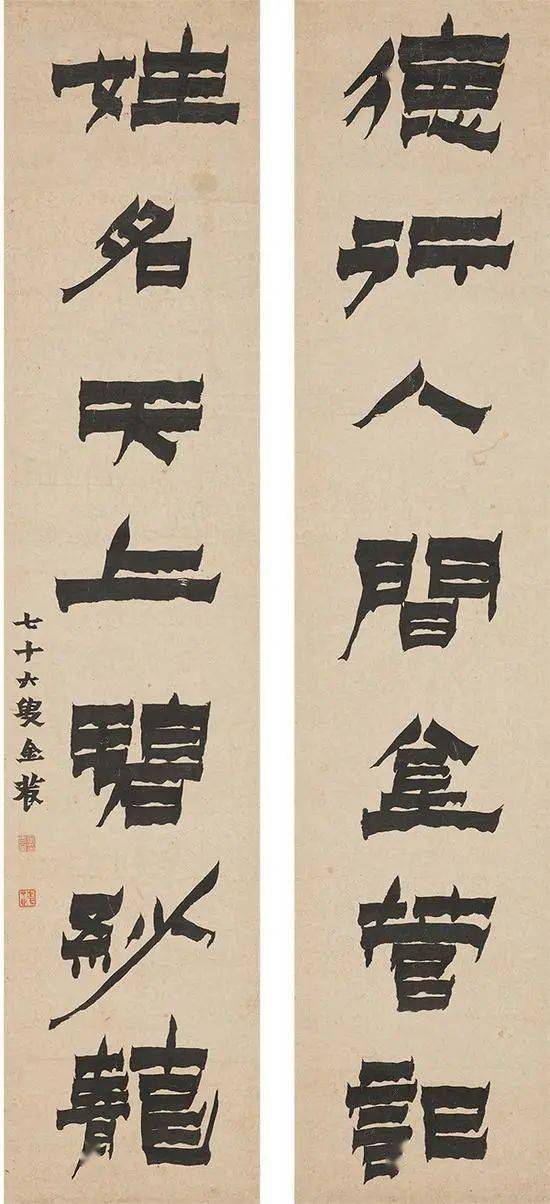 德行人間金管記
姓名天上碧紗龍
七十六叟金農